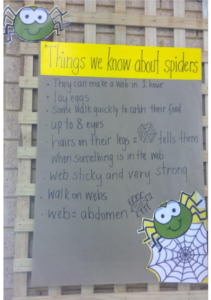 Things we know about spiders
• They can make a web in 1 hour
• lay eggs
• Some walk quickly to catch their food
• up to 8 eyes
• hairs on their legs = tells them
when something is in the web
• Web sticky and very strong
• walk on webs
• web = abdomen